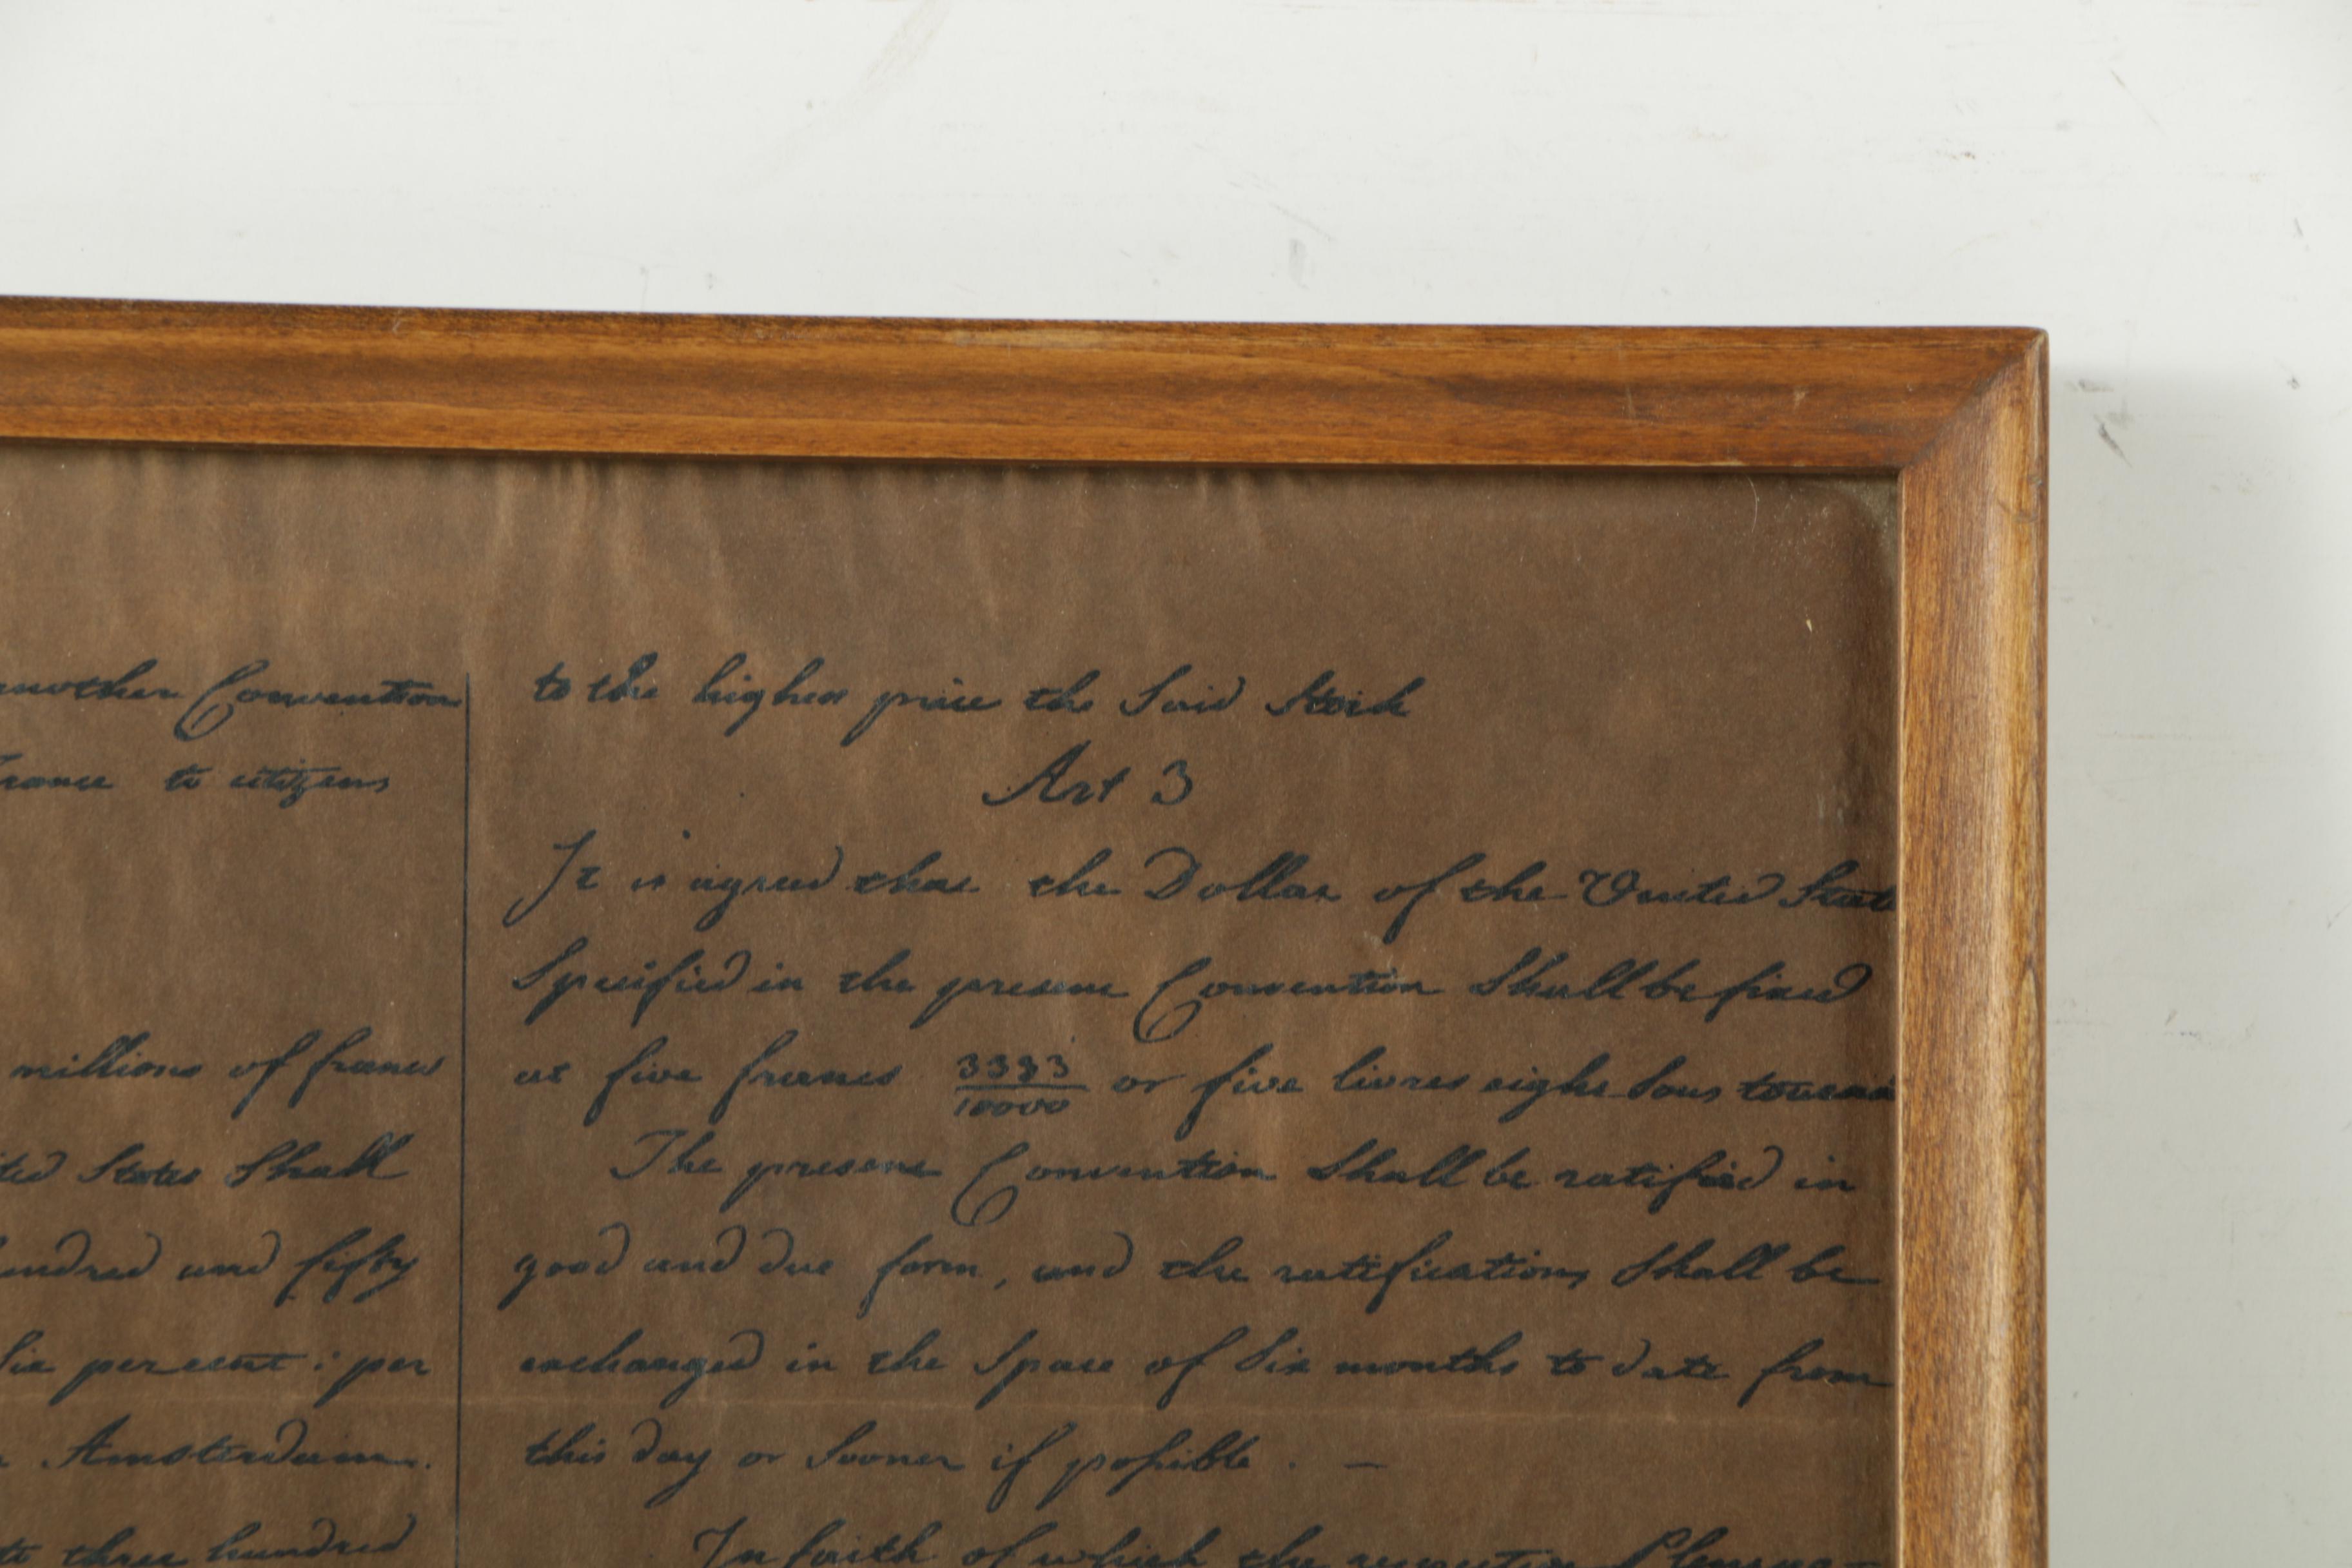 another Convention
to citizens
millions of francs
States Shall
and fifty
per cent : per
Amsterdam.
three hundred
to the highest price the Said Stock
Art 3
It is agreed that the Dollar of the United State
Specified in the present Convention Shall be fixed
at five francs 3333/10000 or five livres eight Sous
The present Convention Shall be ratified in
good and due form, and the ratifications Shall be
exchanged in the Space of Six months to date from
this day or Sooner if possible . —
In faith of which the respective